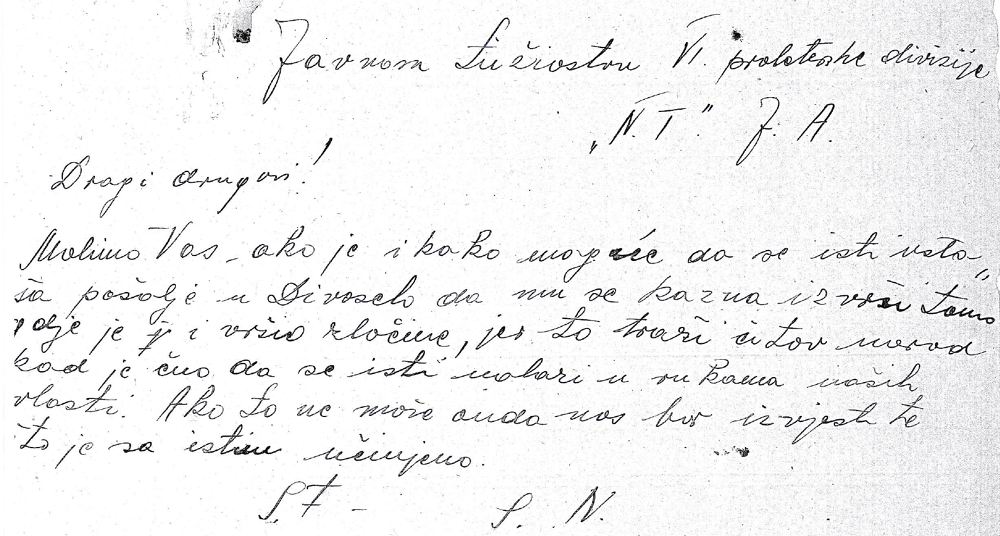 Javnom Tužiostvu VI. proleterske divizije
„N. T." J. A.
Dragi drugovi!
Molimo Vas, ako je i kako moguće da se isti usta„
ša pošalje u Divoselo da mu se kazna izvrši tamo
gdje je i vršio zločine, jer to traži i tov narod
kad je čuo da se isti nalazi u rukama naših
vlasti. Ako to ne može onda nas bar izvjesti te
što je sa istim učinjeno.
S. F - S. N.